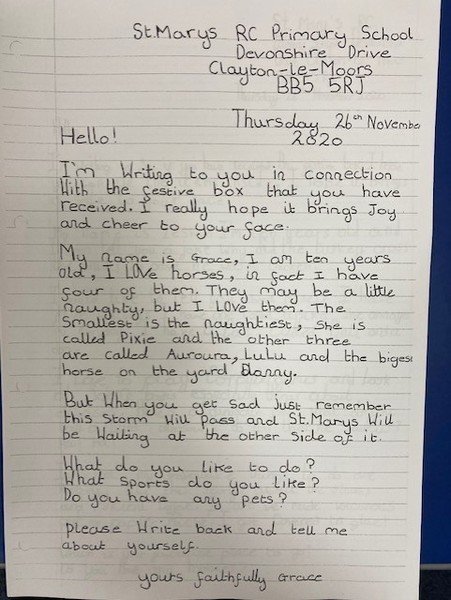 St.Marys RC Primary School
Devonshire Drive
Clayton-le-Moors
BB5 5RJ
Thursday 26th November
2020
Hello!
I'm Writing to you in connection
With the festive box that you have
received. I really hope it brings Joy
and cheer to your face.
My name is Grace, I am ten years
old, I Love horses, in fact I have
four of them. They may be a little
naughty, but I Love them. The
Smallest is the naughtiest, She is
called Pixie and the other three
are called Auroura, LuLu and the bigest
horse on the yard Danny.
But When you get sad just remember
this Storm Will Pass and St.Marys Will
be Waiting at the other Side of it.
What do you like to do?
What sports do you like?
Do you have any pets?
Please Write back and tell me
about yourself.
yours faithfully Grace